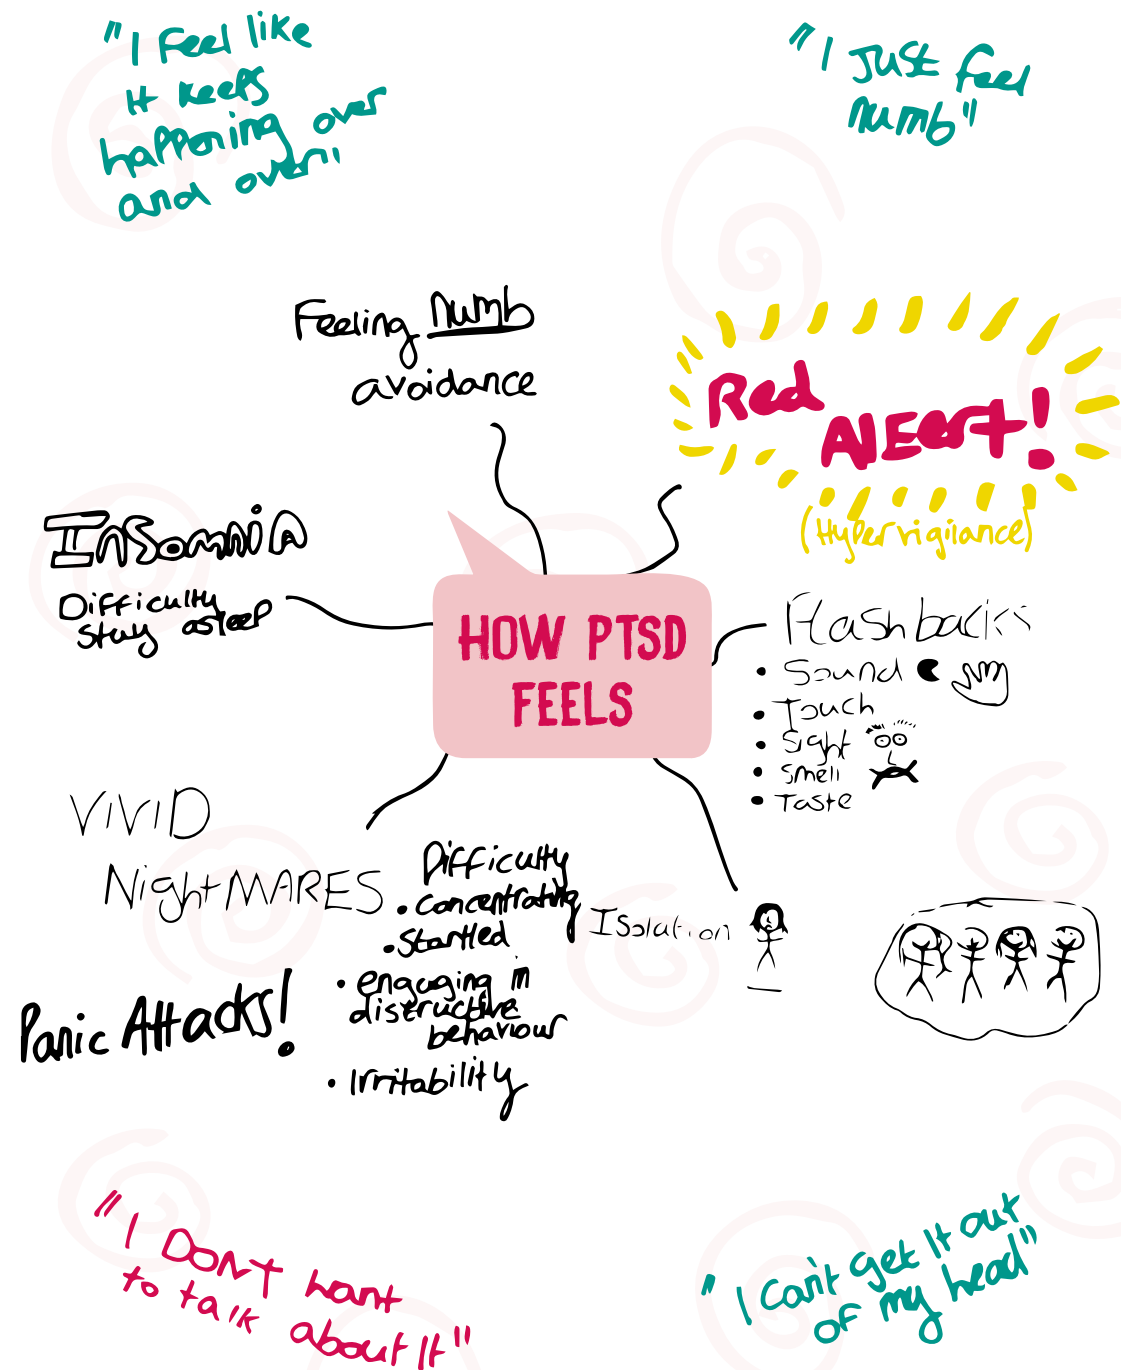 "I Feel like
it keeps
happening over
and over"
"I Just feel
numb"
Feeling numb
avoidance
Red
AlEert!
(Hypervigilance)
Insomnia
Difficulty
stay asleep
HOW PTSD
FEELS
Flashbacks
• Sound
• Touch
• Sight
• Smell
• Taste
VIVID
NightMARES
Difficulty
• concentrating
• Startled
• engaging in
distructive
behaviour
• Irritability
Isolation
Panic Attacks!
"I DON'T want
to talk about It"
"I can't get It out
of my head"